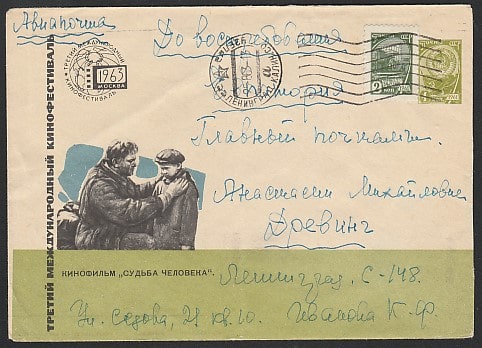 Авиапочта
До востребования
ТРЕТИЙ МЕЖДУНАРОДНЫЙ КИНОФЕСТИВАЛЬ
ТРЕТИЙ МЕЖДУНАРОДНЫЙ
1963
МОСКВА
КИНОФЕСТИВАЛЬ
ЛЕНИНГРАД
2
Главный почтамт
Анастасии Михайловне
Древинг
КИНОФИЛЬМ „СУДЬБА ЧЕЛОВЕКА".
Ленинград, С-148.
Ул. Седова, 21 кв. 10. Иванова К. Ф.